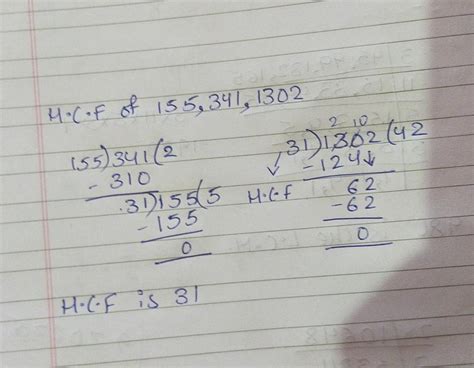 H.C.F of 155, 341, 1302
155)341(2
- 310
31)155(5
- 155
0
2 10
31)1302(42
- 124
H.C.F
62
- 62
0
H.C.F is 31